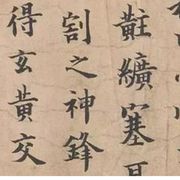 黈纊塞耳
割之神鋒
得玄黄交